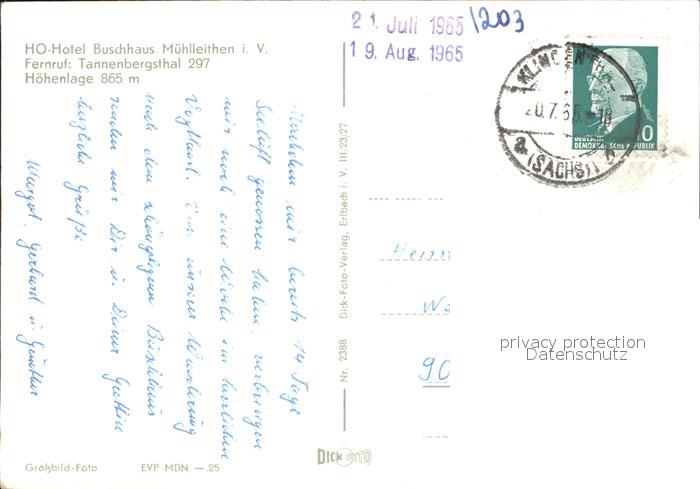 HO-Hotel Buschhaus Mühlleithen i. V.
Fernruf: Tannenbergsthal 297
Höhenlage 865 m
21. Juli 1965
19. Aug. 1965
1203
KLINGENTHAL
20.7.65.-18
a
(SACHS) 1
10
DEUTSCHE
DEMOKRATISCHE REPUBLIK
Nachdem wir bereits 14 Tage
Seeluft genossen haben, verbringen
wir noch eine Woche im herrlichen
Vogtland. Von unserer Wanderung
nach dem schöngelegenen Buschhaus
senden wir Dir u. Deiner Gattin
herzliche Grüße
Margot, Gerhard u. Günther
Nr. 2388 Dick-Foto-Verlag, Erlbach i. V. III.23/27
Herrn
We
90
privacy protection
Datenschutz
DICK FOTO
Großbild-Foto EVP MDN —.25